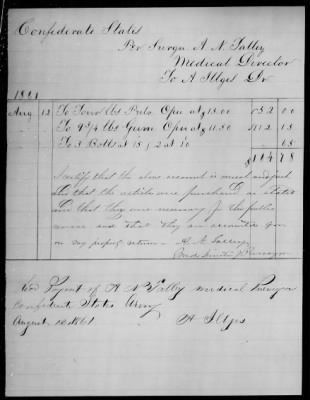 Confederate States
Per Surgn A N Talley
Medical Director
To A Illges Dr
1861
Aug 12 To Four lbs Pulv. Opii at 13.00 052 00
To 9 3/4 lbs Gum Opii at 11.50 112 13
To 3 Botts at 15 / 2 at 10 65
$ 164 78
I certify that the above account is correct and just
that the articles were purchased as stated
and that they were necessary for the public
service and that they are accounted for
on my property return - A. N. Talley
Medical Director
Recd Paymt of A N Talley Medical
Confederate States Army
August 1861
A Illges